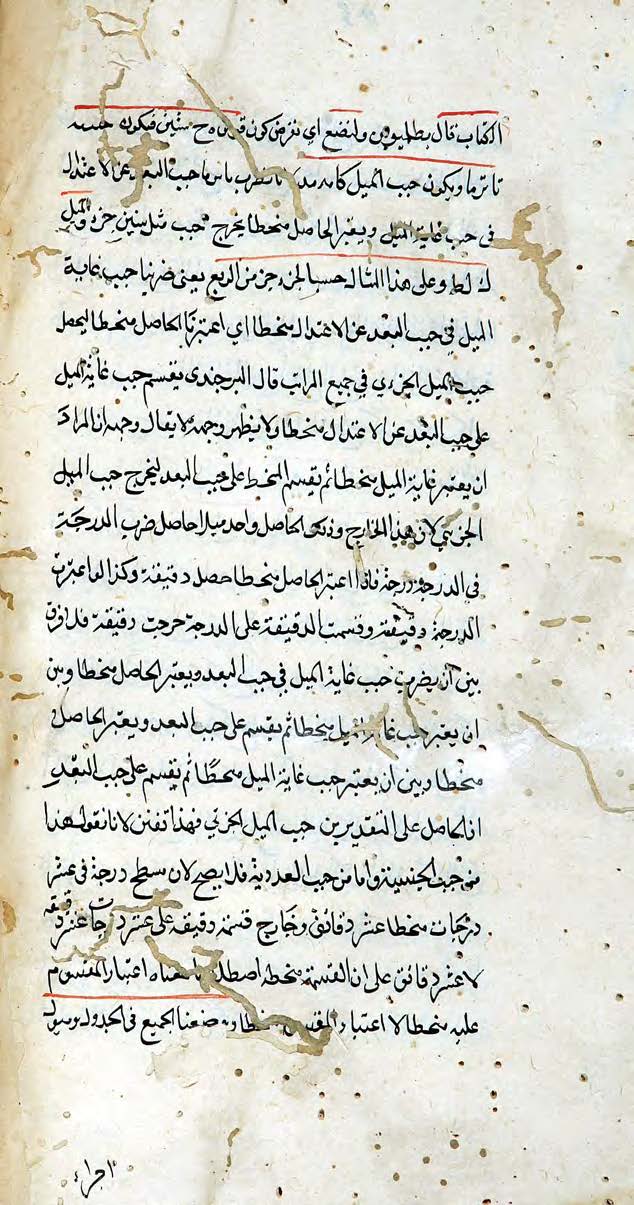 الكتاب قال بطلميوس ولنضع اي نفرض كون قوس ه ح ستين فيكون جيبه
ويكون جيب الميل كله جيب البعد عن الاعتدال
في جيب غاية الميل ويعتبر الحاصل منحطا يخرج جيب مثل ستين جزءا والميل
ك لط وعلى هذا المثال حسبنا لجزء جزء من الربع يعنى ضربنا جيب غاية
الميل في جيب البعد عن الاعتدال منحطا اي اعتبرنا الحاصل منحطا ليحصل
جيب الميل الجزءي في جميع المراتب قال البرجندى يقسم جيب غاية الميل
على جيب البعد عن الاعتدال منحطا ولا يظهر وجهه لا يقال وجهه ان المراد
ان يعتبر غاية الميل منحطا ثم يقسم المنحط على جيب البعد ليخرج جيب الميل
الجزئي لان هذا الخارج وذلك الحاصل واحد مثلا حاصل ضرب الدرجة
في الدرجة درجة فاذا اعتبر الحاصل منحطا حصل دقيقة وكذا لو اعتبرت
الدرجة دقيقة وقسمت الدقيقة على الدرجة خرجت دقيقة فلا فرق
بين ان يضرب جيب غاية الميل في جيب البعد ويعتبر الحاصل منحطا وبين
ان يعتبر جيب غاية الميل منحطا ثم يقسم على جيب البعد ويعتبر الحاصل
منحطا وبين ان يعتبر جيب غاية الميل منحطا ثم يقسم على جيب البعد
اذ الحاصل على التقديرين جيب الميل الجزئي فهذا تفنن لانا نقول هذا
من حيث الجنسية واما من حيث العددية فلا يصح لان سطح درجة في عشر
درجات منحطا عشر دقائق وخارج قسمة دقيقة على عشر درجات عشر دقيقة
لا عشر دقائق على ان القسمة منحطه اصطلاحا معناه اعتبار المقسوم
عليه منحطا لا اعتبار المقسوم منحطا ووضعنا الجميع في الجدول
اجراء